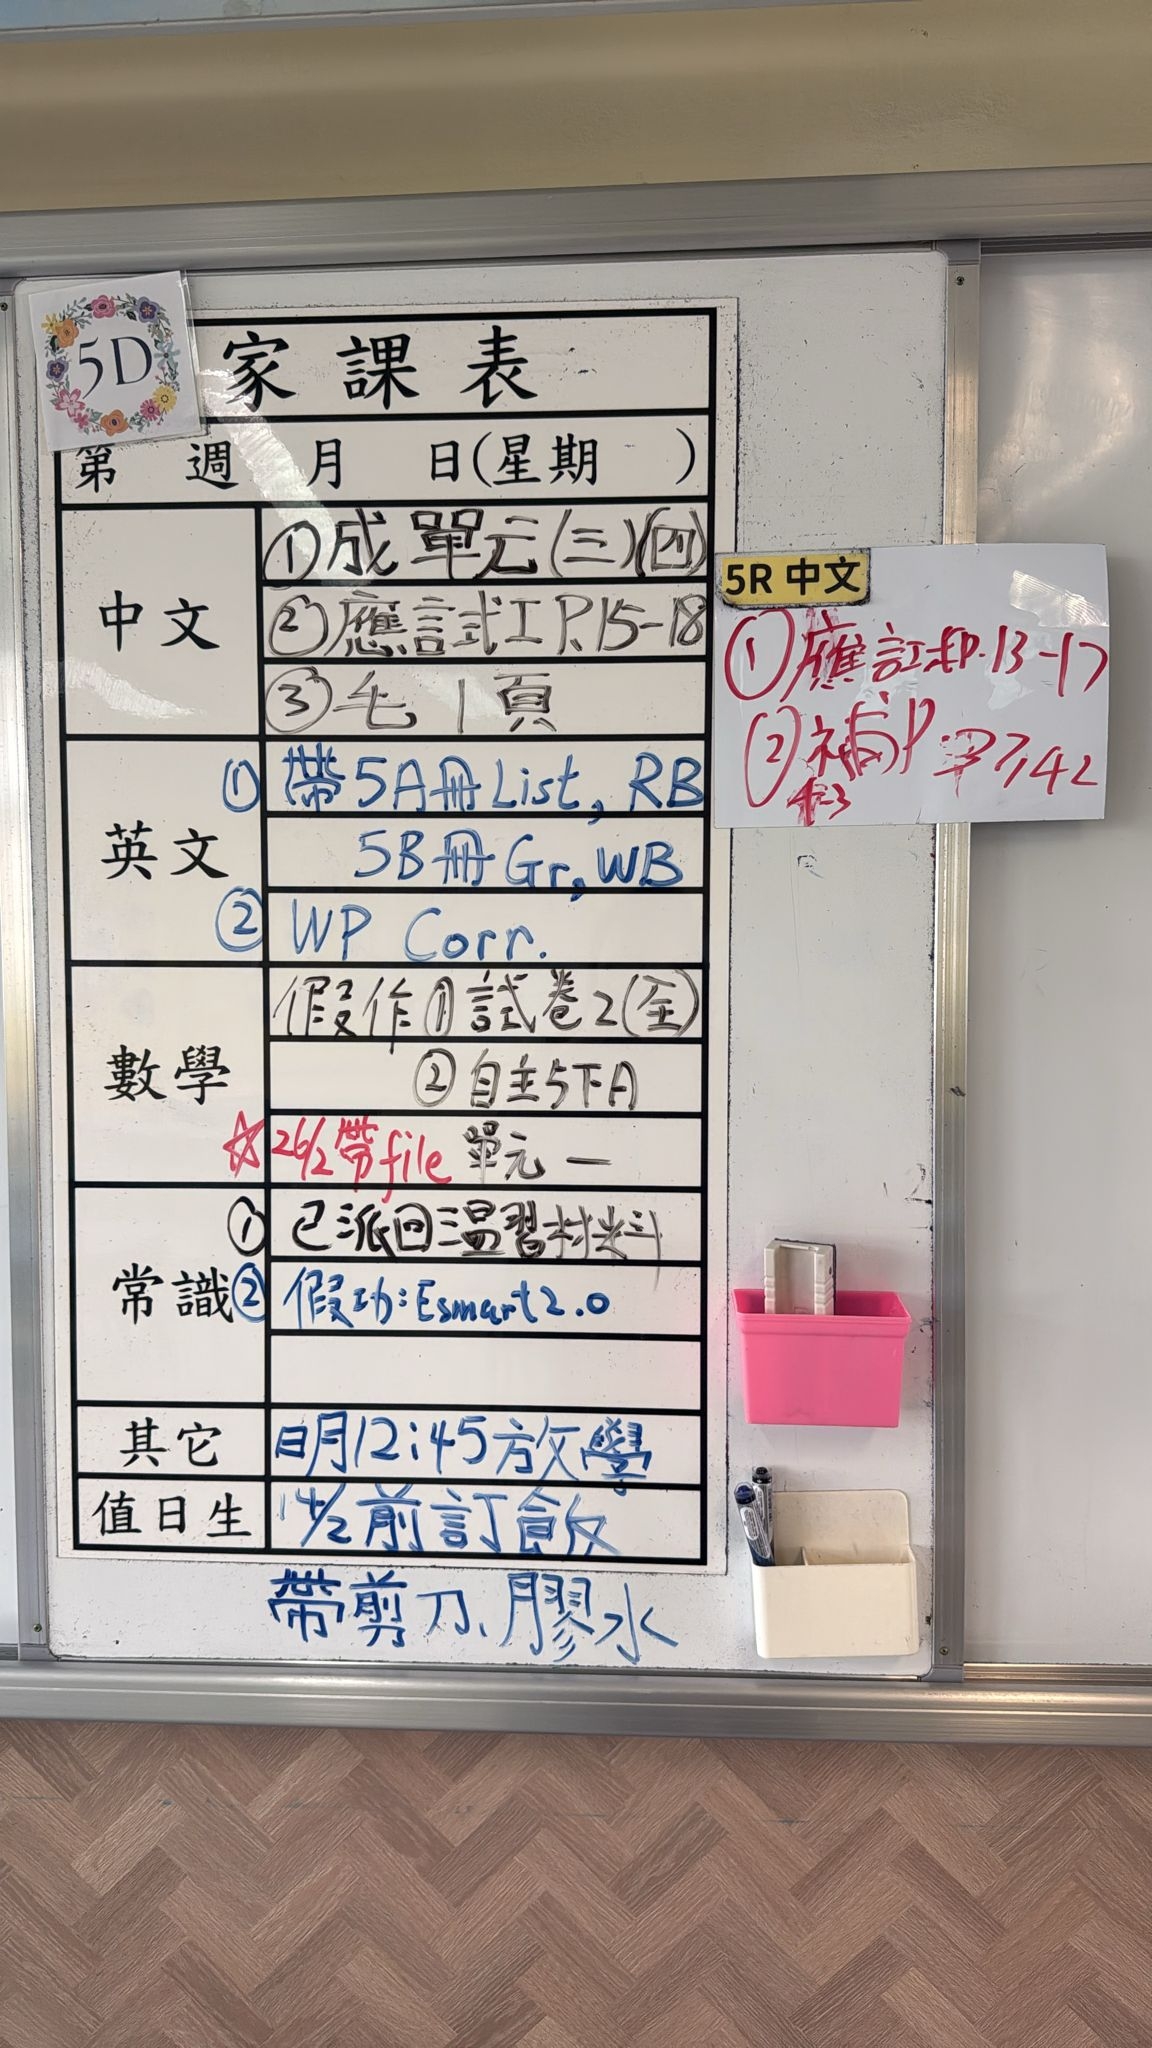 5D
家課表
第 週 月 日(星期 )
中文
①成單元(三)(四)
②應試工P.15-18
③毛1頁
英文
①帶5A冊List, RB
5B冊Gr, WB
②WP Corr.
數學
假作①試卷2(全)
②自主5下A
☆26/2帶file 單元一
常識
①已派回溫習材料
②假功:Esmart2.0
其它
明12:45放學
值日生
14/2前訂飯
帶剪刀、膠水
5R 中文
①應試P.13-17
②補P 37,42